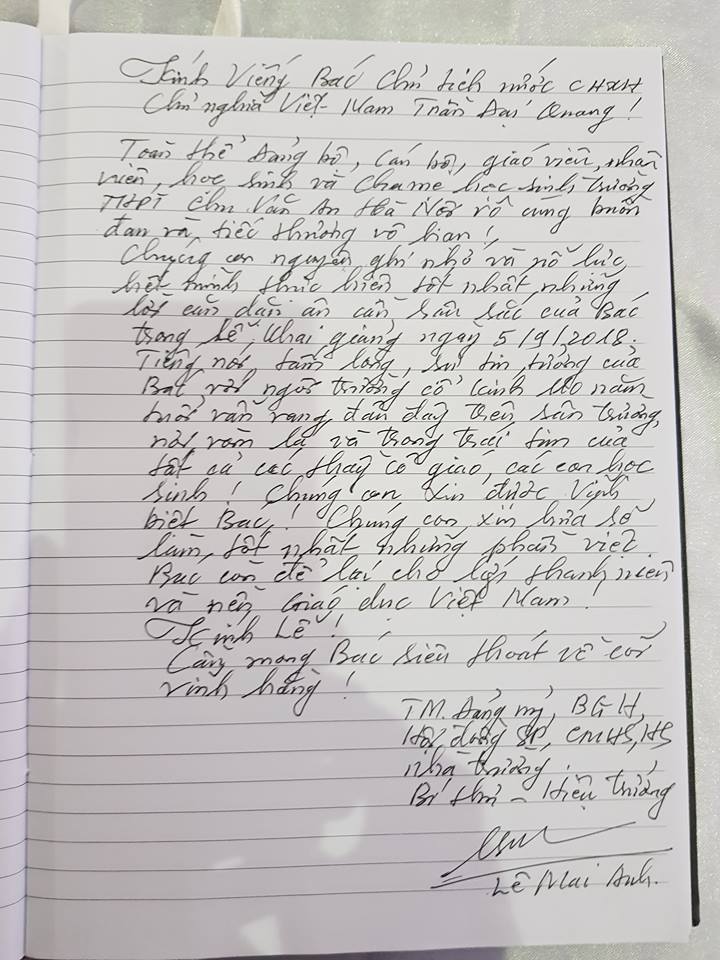 Kính Viếng Bác Chủ tịch nước CHXH
Chủ nghĩa Việt Nam Trần Đại Quang!
Toàn thể Đảng bộ, cán bộ, giáo viên, nhân
viên, học sinh và Cha mẹ học sinh trường
THPT Chu Văn An Hà Nội vô cùng buồn
đau và tiếc thương vô hạn!
Chúng con nguyện ghi nhớ và nỗ lực
hết mình thực hiện tốt nhất những
lời căn dặn ân cần, sâu sắc của Bác
trong Lễ Khai giảng ngày 5/9/2018.
Tiếng nói tấm lòng, sự tin tưởng của
Bác với ngôi trường cổ kính 110 năm
tuổi vẫn vang đâu đây trên sân trường,
nơi vòm lá và trong trái tim của
tất cả các thầy cô giáo, các con học
sinh! Chúng con xin được Vĩnh
biệt Bác! Chúng con xin hứa sẽ
làm tốt nhất những phần việc
Bác còn để lại cho lớp thanh niên
và nền Giáo dục Việt Nam!
Kính Lễ!
Cầu mong Bác siêu thoát về cõi
vĩnh hằng!
TM. Đảng ủy, BGH,
Hội đồng SP, CMHS, HS
nhà trường.
Bí thư - Hiệu trưởng
Lê Mai Anh.